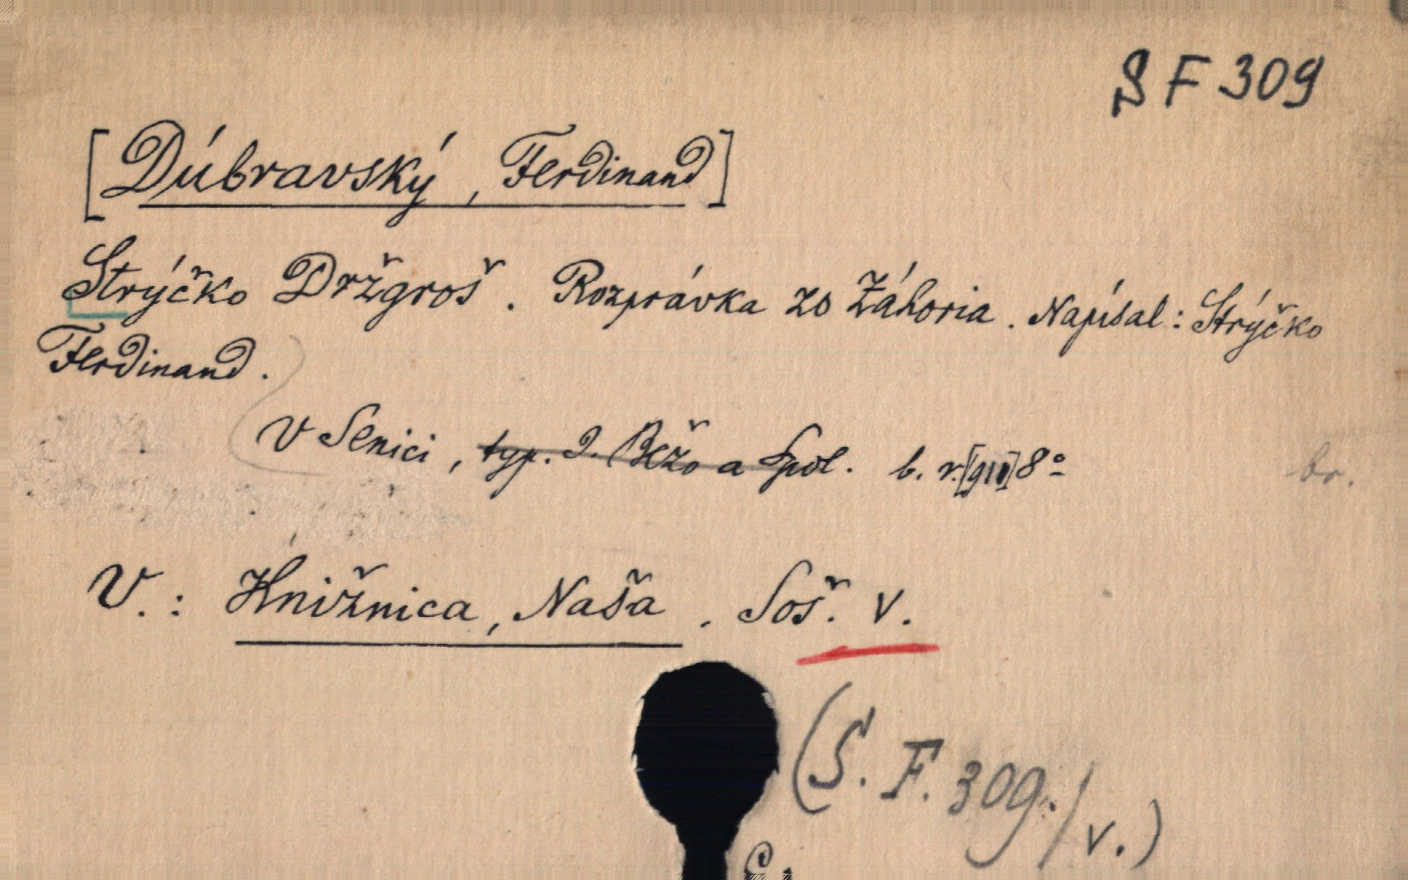 S F 309
[Dúbravský, Ferdinand]
Strýčko Držgroš. Rozprávka zo Záhoria. Napísal: Strýčko
Ferdinand.
V Senici, typ. J. Bežo a Spol. b. r. [910] 8°
br.
V.: Knižnica, Naša. Soš. V.
(S. F. 309./V.)